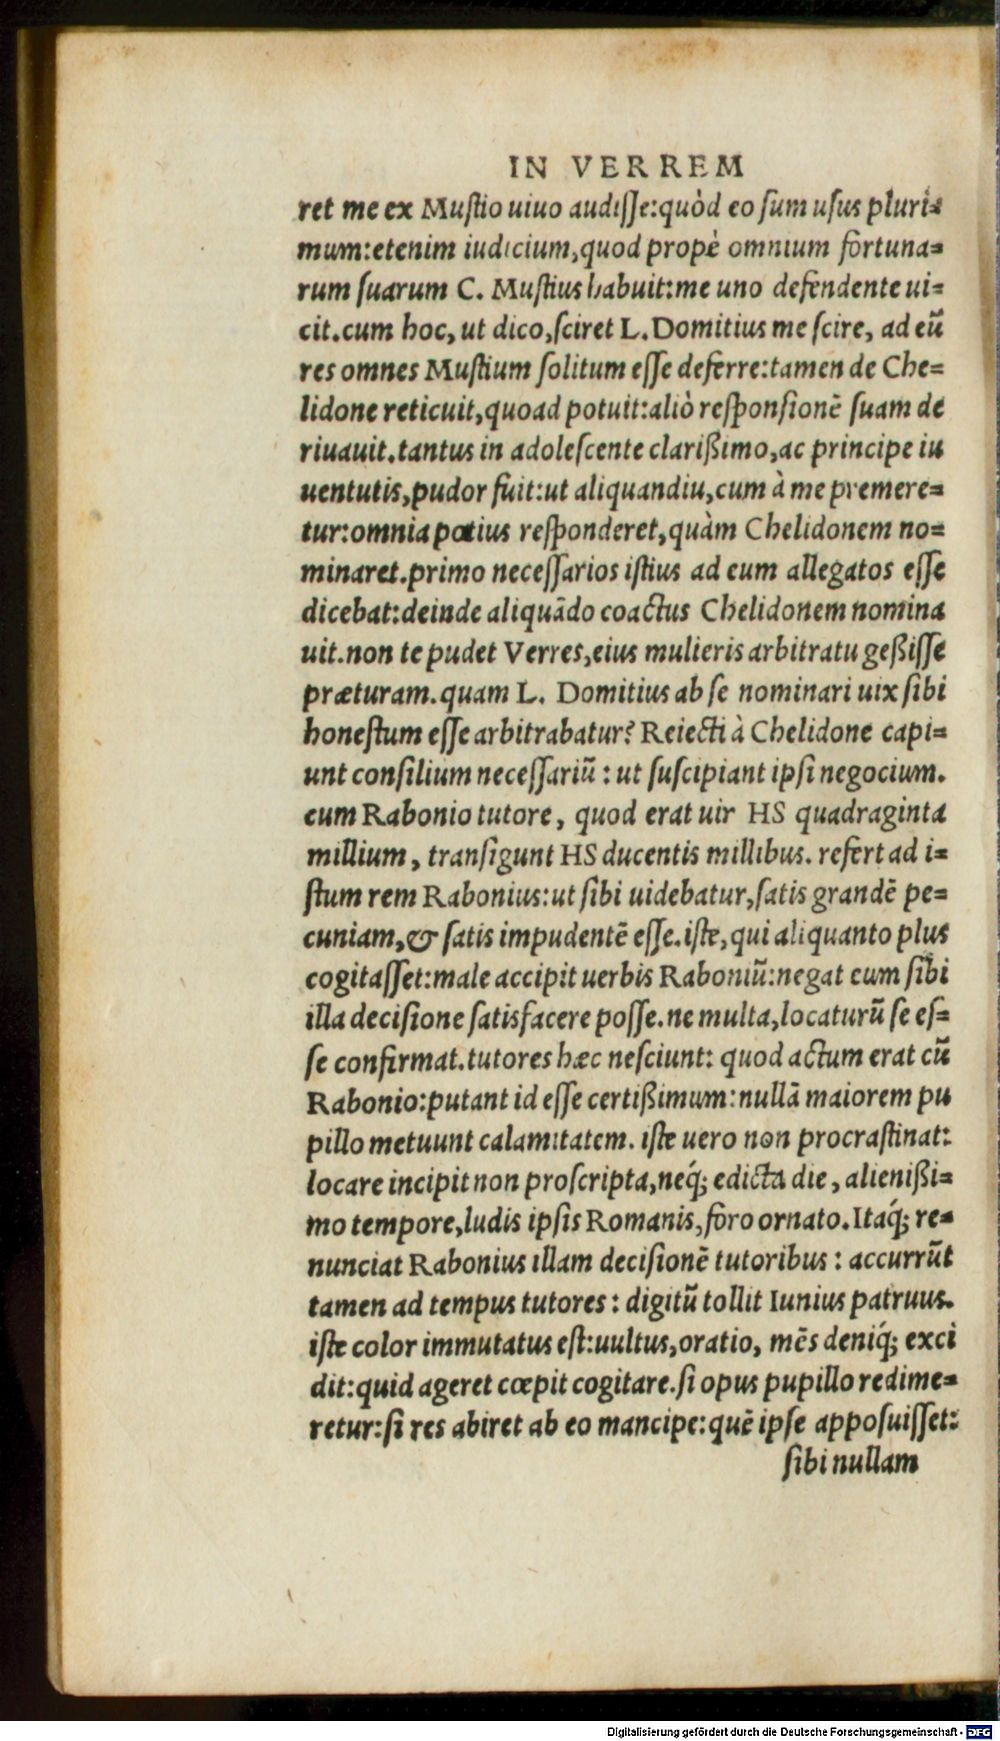 IN VERREM
ret me ex Muſtio uiuo audiſſe:quòd eo ſum uſus pluri-
mum:etenim iudicium,quod propè omnium fortuna-
rum ſuarum C. Muſtius habuit:me uno defendente ui-
cit.cum hoc, ut dico,ſciret L.Domitius me ſcire, ad eũ
res omnes Muſtium ſolitum eſſe deferre:tamen de Che-
lidone reticuit,quoad potuit:aliò reſponſionẽ ſuam de
riuauit.tantus in adoleſcente clarißimo,ac principe iu
uentutis,pudor fuit:ut aliquandiu,cum à me premere-
tur:omnia potius reſponderet,quàm Chelidonem no-
minaret.primo neceſſarios iſtius ad eum allegatos eſſe
dicebat:deinde aliquãdo coactus Chelidonem nomina
uit.non te pudet Verres,eius mulieris arbitratu geßiſſe
præturam.quam L. Domitius ab ſe nominari uix ſibi
honeſtum eſſe arbitrabatur? Reiecti à Chelidone capi-
unt conſilium neceſſariũ : ut ſuſcipiant ipſi negocium.
cum Rabonio tutore, quod erat uir HS quadraginta
millium, tranſigunt HS ducentis millibus. refert ad i-
ſtum rem Rabonius:ut ſibi uidebatur,ſatis grandẽ pe-
cuniam,& ſatis impudentẽ eſſe.iſte,qui aliquanto plus
cogitaſſet:male accipit uerbis Raboniũ:negat eum ſibi
illa deciſione ſatisfacere poſſe.ne multa,locaturũ ſe eſ-
ſe confirmat.tutores hæc neſciunt: quod actum erat cũ
Rabonio:putant id eſſe certißimum:nullã maiorem pu
pillo metuunt calamitatem. iſte uero non procraſtinat:
locare incipit non proſcripta,neq́; edicta die, alienißi-
mo tempore,ludis ipſis Romanis,foro ornato.Itaq́; re-
nunciat Rabonius illam deciſionẽ tutoribus : accurrũt
tamen ad tempus tutores : digitũ tollit Iunius patruus.
iſte color immutatus eſt:uultus,oratio, mẽs deniq́; exci
dit:quid ageret cœpit cogitare.ſi opus pupillo redime-
retur:ſi res abiret ab eo mancipe:quẽ ipſe appoſuiſſet:
ſibi nullam
Digitalisierung gefördert durch die Deutsche Forschungsgemeinschaft - DFG